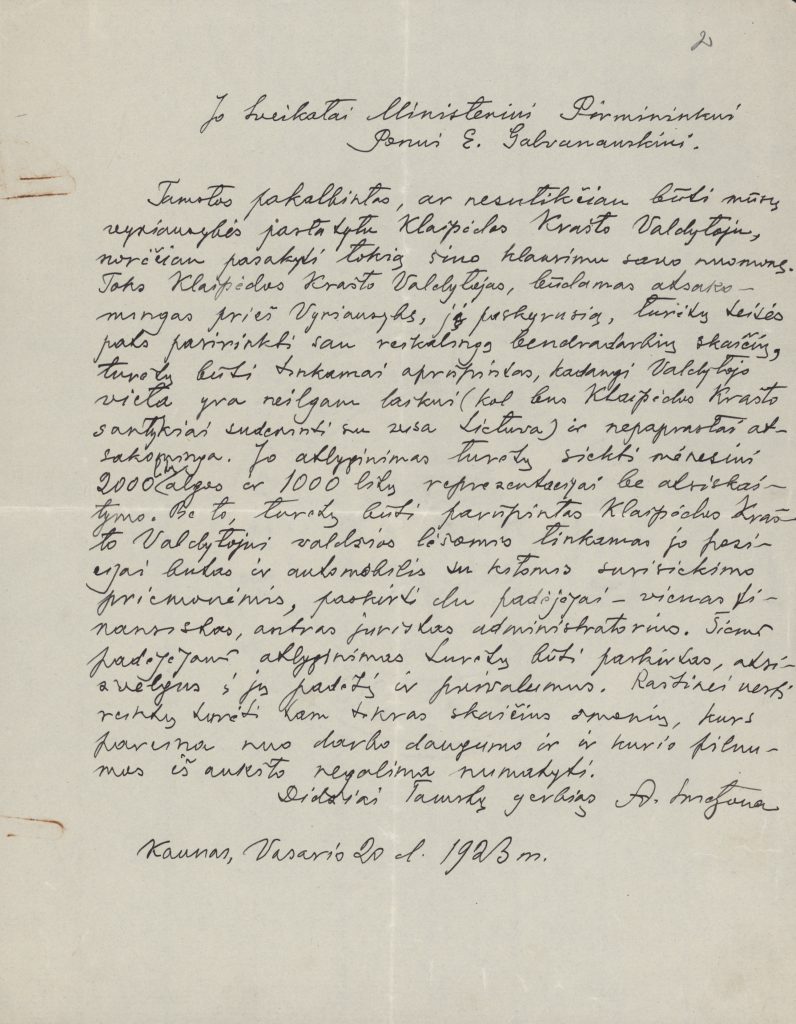 2
Jo Sveikatai Ministeriui Pirmininkui
Ponui E. Galvanauskui.
Tamstos pakalbintas, ar nesutikčiau būti mūsų
vyriausybės pastatytu Klaipėdos Krašto Valdytoju,
norėčiau pasakyti tokią šiuo klausimu savo nuomonę.
Toks Klaipėdos Krašto Valdytojas, būdamas atsako-
mingas prieš Vyriausybę, jį paskyrusią, turėtų teisės
pats pasirinkti sau reikalingą bendradarbių skaičių,
turėtų būti tinkamai aprūpintas, kadangi Valdytojo
vieta yra neilgam laikui (kol bus Klaipėdos Krašto
santykiai suderinti su visa Lietuva) ir nepaprastai at-
sakominga. Jo atlyginimas turėtų siekti mėnesiui
2000 lt algos ir 1000 litų reprezentacijai be atsiskai-
tymo. Be to, turėtų būti parūpintas Klaipėdos Kraš-
to Valdytojui valdžios lėšomis tinkamas jo pozi-
cijai butas ir automobilis su kitomis susisiekimo
priemonėmis, paskirti du padėjėjai – vienas fi-
nansistas, antras juristas administratorius. Šiems
padėjėjams atlyginimas turėtų būti paskirtas, atsi-
žvelgus į jų padėtį ir privalumus. Raštinei vesti
reiktų turėti tam tikras skaičius žmonių, kurs
pareina nuo darbo daugumo ir ir kurio pilnu-
mos iš aukšto negalima numatyti.
Didžiai Tamstą gerbiąs A. Smetona
Kaunas, Vasario 20 d. 1923 m.